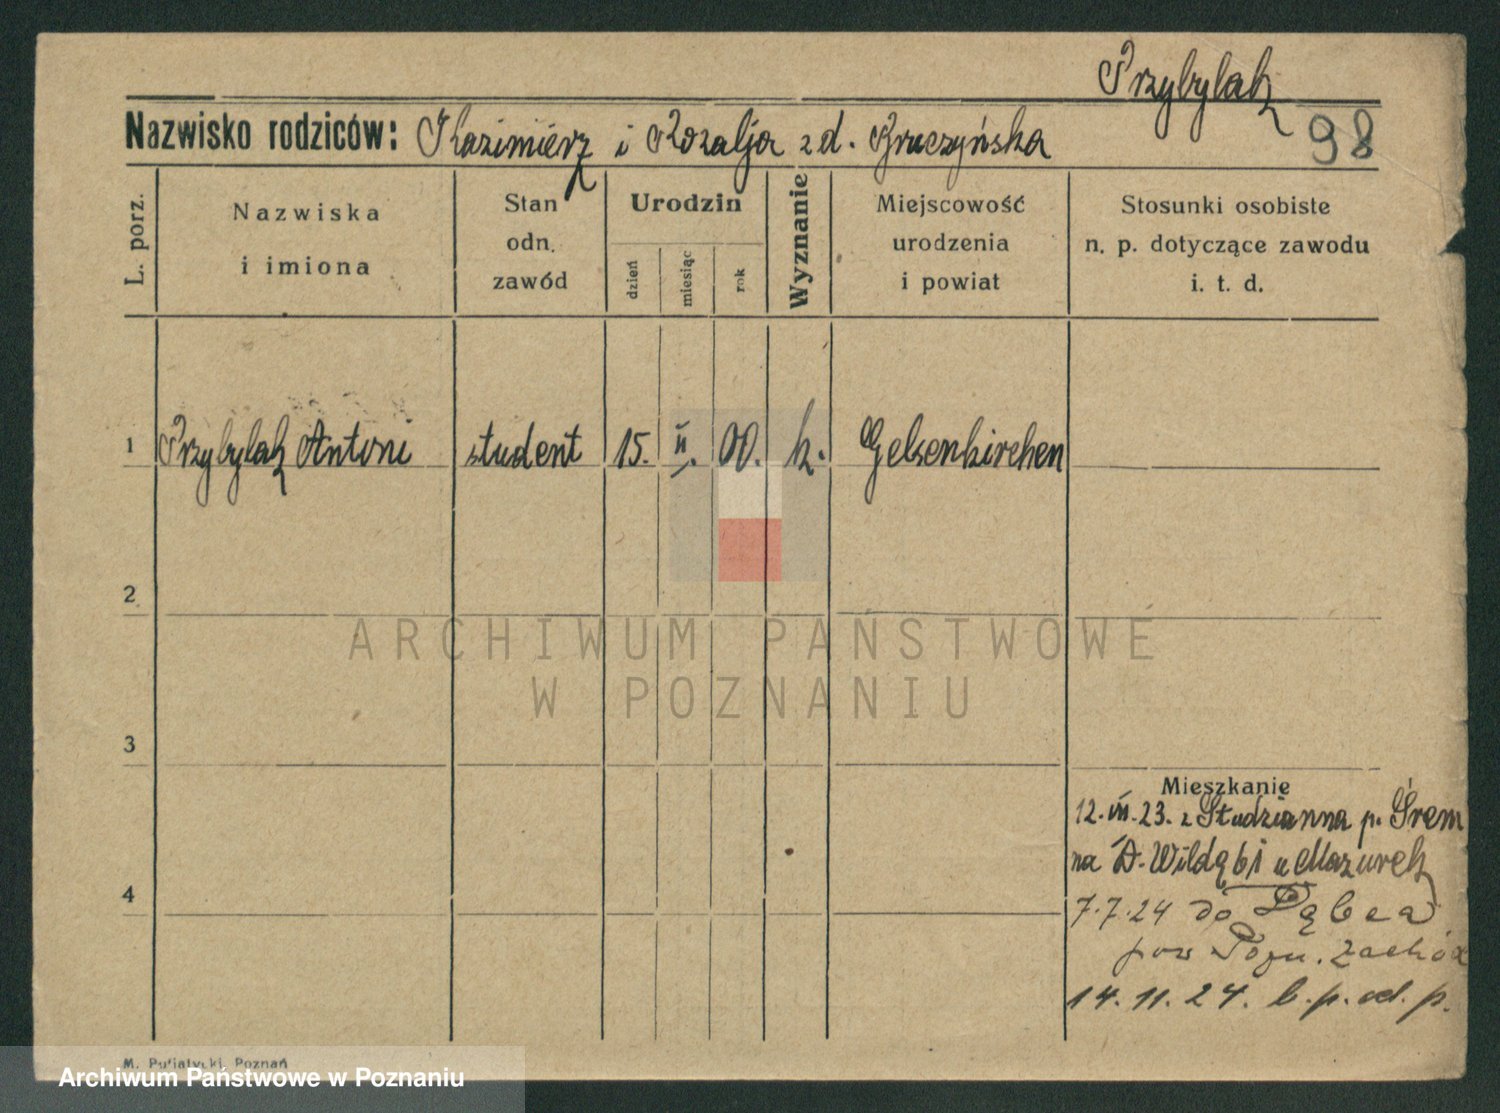 Przybylak
Nazwisko rodziców: Kazimierz i Rozalja z d. Bruczyńska
98
L. porz.
Nazwiska
i imiona
Stan
odn.
zawód
Urodzin
dzień
miesiąc
rok
Wyznanie
Miejscowość
urodzenia
i powiat
Stosunki osobiste
n. p. dotyczące zawodu
i. t. d.
1 Przybylak Antoni student 15. II. 00. k. Gelsenkirchen
2
ARCHIWUM PAŃSTWOWE
W POZNANIU
3
Mieszkanie
12. 23. z Studzianna p. Śrem
na D. Wildę bi u Mazurek
4
7.7.24 do
pow Pozn. Zachód
14. 11. 24. b. p. od. p.
M. Putiatycki, Poznań
Archiwum Państwowe w Poznaniu